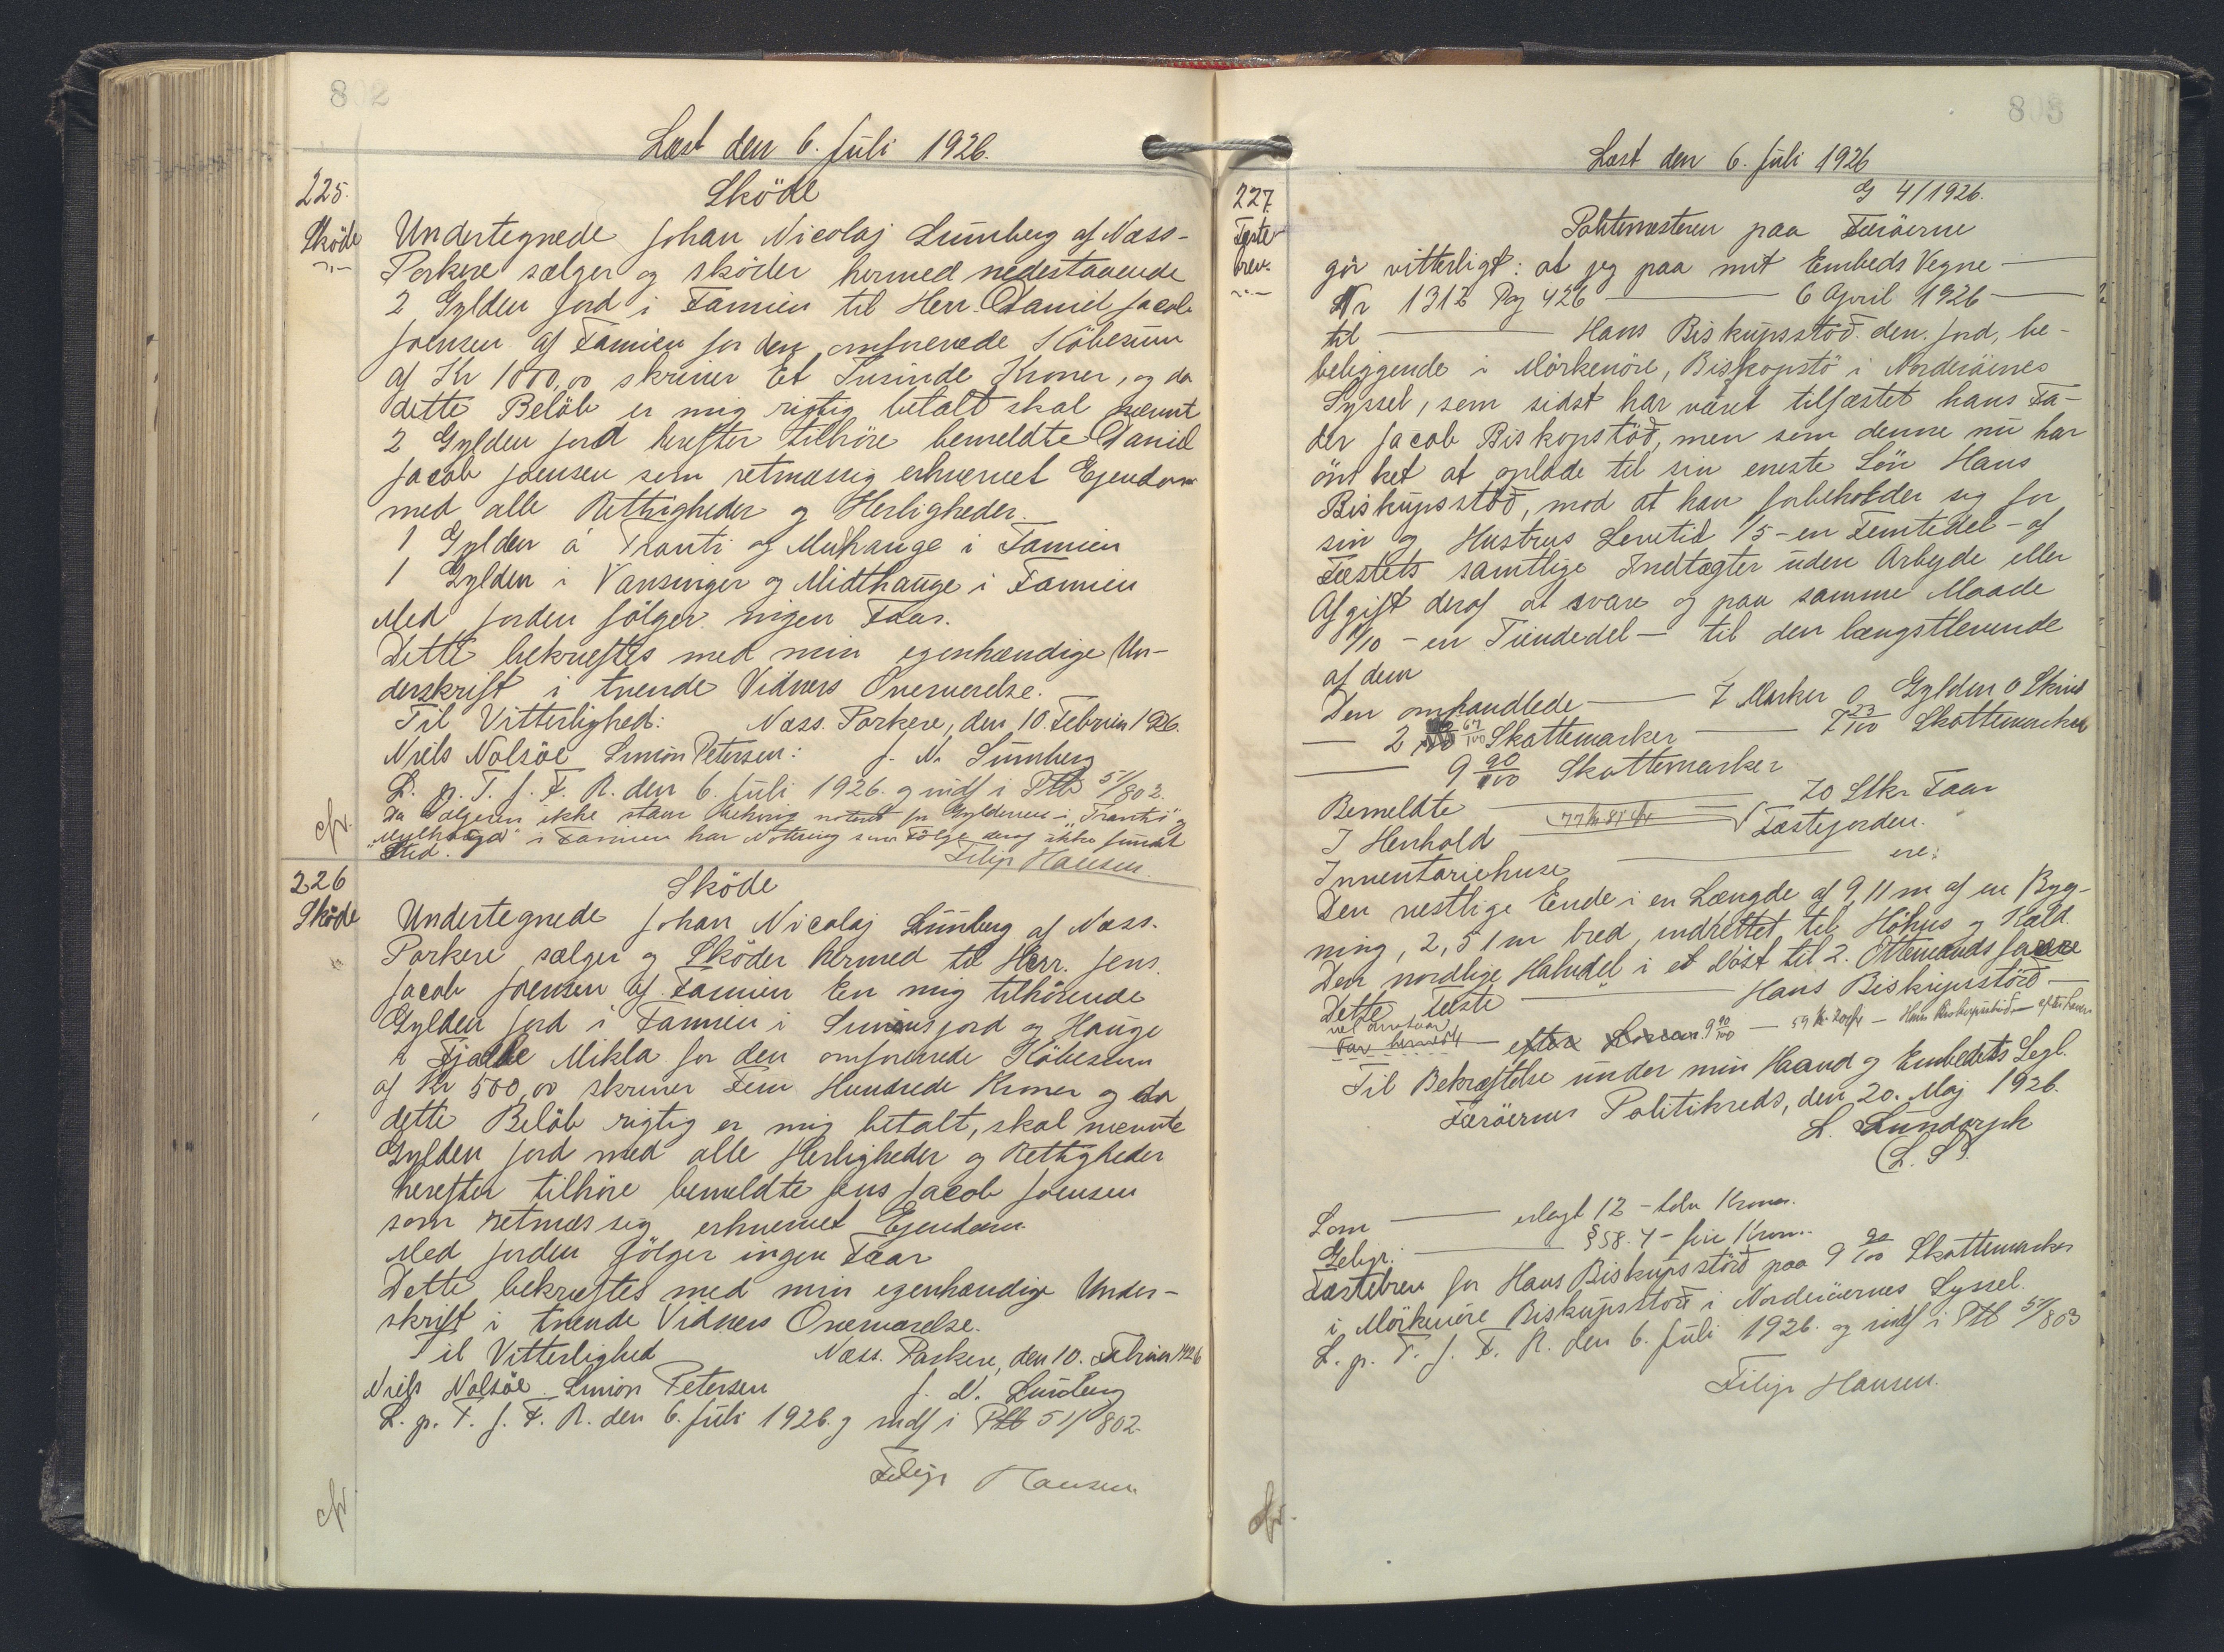 802
Læst den 6. Juli 1926.
225.
Sköde
Sköde
Undertegnede Johan Nicolaj Lünberg af Næss-
Porkere sælger og sköder hermed nedestaaende
2 Gylden Jord i Famien til Herr. Daniel Jacob
Joensen af Famien for den omforenede Köbesum
af Kr 1000,00 skriver Et Tusinde Kroner, og da
dette Belöb er mig rigtig betalt skal nævnt
2 Gylden Jord herefter tilhöre bemeldte Daniel
Jacob Joensen som retmæssig erhvervet Ejendom
med alle Rettigheder og Herligheder.
1 Gylden á Tranti og Mulhauge i Famien
1 Gylden i Vansinger og Midthauge i Famien
Med Jorden fölger ingen Faar.
Dette bekræftes med min egenhændige Un-
derskrift i tvende Vidners Overværelse.
Til Vitterlighed: Næss. Porkere, den 10. Februar 1926.
Niels Nolsöe Simon Petersen: J. N. Lünberg
L. p. T. f. F. R. den 6. Juli 1926. og indf i Ptb 51/802.
Da Sælgeren ikke staar noteret for Gyldenen i "Trantis" og
"Mulhauga" i Famien har Notering som Fölge deraf ikke fundet
Sted. Filip Hansen.
cfr.
226
Sköde
Sköde
Undertegnede Johan Nicolaj Lünberg af Næss.
Porkere sælger og Sköder hermed til Herr. Jens
Jacob Joensen af Famien En mig tilhörende
Gylden Jord i Famien i Simonsjord og Hauge
i Mikla for den omforenede Köbesum
af Kr 500,00 skriver Fem Hundrede Kroner og da
dette Belöb rigtig er mig betalt, skal nævnte
Gylden Jord med alle Herligheder og Rettigheder
herefter tilhöre bemeldte Jens Jacob Joensen
som retmæssig erhvervet Ejendom.
Med Jorden fölger ingen Faar
Dette bekræftes med min egenhændige Under-
skrift i tvende Vidners Overværelse.
Til Vitterlighed Næss. Porkere, den 10. Februar 1926
Niels Nolsöe. Simon Petersen J. N. Lünberg
L. p. T. f. F. R. den 6. Juli 1926. og indf i Ptb 51/802.
Filip Hansen
cfr.
803
Læst den 6. Juli 1926
G 4/1926.
227.
Fæste
brev.
Politimesteren paa Færöerne
gör vitterligt: at jeg paa mit Embeds Vegne
Nr 1312 Pag 426 6 April 1926
til Hans Biskupsstöð. den Jord, be-
beliggende i Mörkenöre, Biskopstö i Norderöernes
Syssel, som sidst har været tilfæstet hans Fa-
der Jacob Biskopstöð, men som denne nu har
önsket at oplade til sin eneste Sön Hans
Biskupsstöð, mod at han forbeholder sig for
sin og Hustrus Levetid 1/5 - en Femtedel - af
Fæstets samtlige Indtægter uden Arbejde eller
Afgift deraf at svare og paa samme Maade
1/10 - en Tiendedel - til den længstlevende
af dem
Den omhandlede 7 Marker 0 Gylden 0 Skind
2 67/100 Skattemarker 7 23/100 Skattemarker
9 90/100 Skattemarker
Bemeldte 70 Stkr Faar
I Henhold Fæstejorden.
Inventariehuse ere:
Den vestlige Ende i en Længde af 9,11 m af en Byg-
ning, 2,51 m bred, indrettet til Höhus og Kæld.
Den nordlige Halvdel i et Nöst til 2. Ottemands Farere
Dette Fæste Hans Biskupsstöð
9 90/100 - 59 Kr - Hans Biskupsstöð
Til Bekræftelse under min Haand og Embedets Segl.
Færöernes Politikreds, den 20. Maj 1926.
L. Lundorph
(L. S).
Som erlagt 12 - tolv Kroner.
Gebyr. § 58. 4 - fire Kroner.
Fæstebrev for Hans Biskupsstöð paa 9 90/100 Skattemarker
i Mörkenöre Biskupsstöð i Norderöernes Syssel.
L. p. T. f. F. R. den 6. Juli 1926. og indf i Ptb 51/803
Filip Hansen.
cfr.